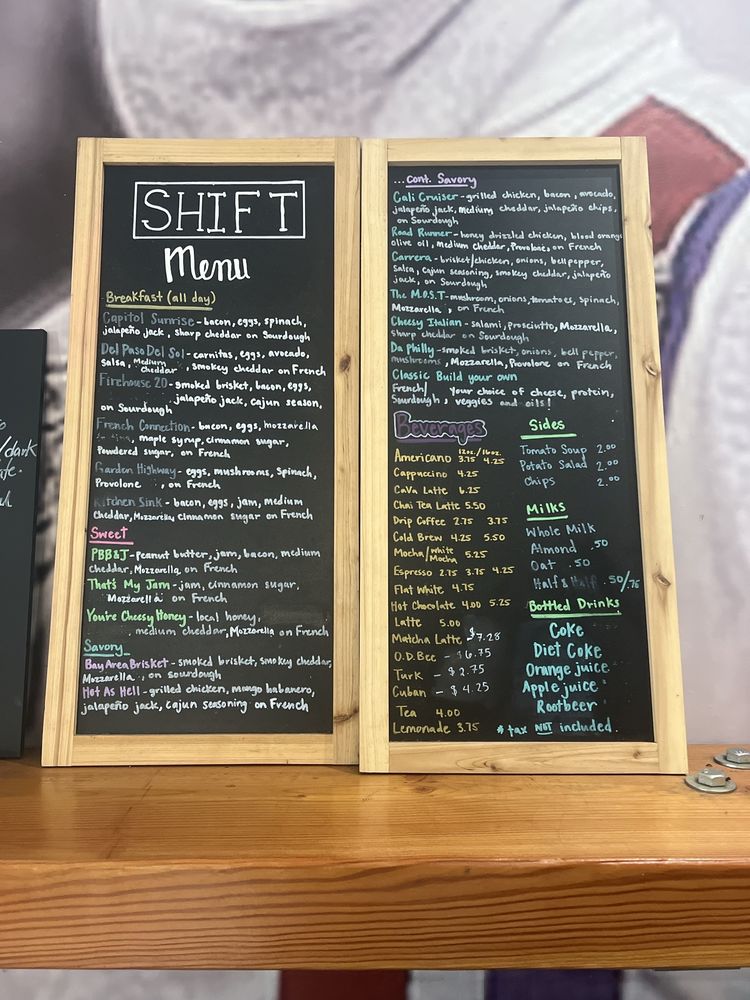 SHIFT
Menu
Breakfast (all day)
Capitol Sunrise - bacon, eggs, spinach,
jalapeño jack, sharp cheddar on Sourdough
Del Paso Del Sol - carnitas, eggs, avocado,
salsa, Medium Cheddar, smokey cheddar on French
Firehouse 20 - smoked brisket, bacon, eggs,
jalapeño jack, cajun season,
on Sourdough
French Connection - bacon, eggs, mozzarella
maple syrup, cinnamon sugar,
Powdered sugar, on French
Garden Highway - eggs, mushrooms, spinach,
Provolone , on French
Kitchen Sink - bacon, eggs, jam, medium
Cheddar, Mozzarella, cinnamon sugar on French
Sweet
PBB&J - peanut butter, jam, bacon, medium
cheddar, Mozzarella, on French
That's My Jam - jam, cinnamon sugar,
Mozzarella on French
You're Cheesy Honey - local honey,
medium cheddar, Mozzarella on French
Savory
Bay Area Brisket - smoked brisket, smokey cheddar,
Mozzarella, on sourdough
Hot As Hell - grilled chicken, mango habanero,
jalapeño jack, cajun seasoning on French
...cont. Savory
Cali Cruiser - grilled chicken, bacon, avocado,
jalapeño jack, medium cheddar, jalapeño chips,
on Sourdough
Road Runner - honey drizzled chicken, blood orange
olive oil, medium cheddar, Provolone, on French
Carrera - brisket/chicken, onions, bell pepper,
salsa, cajun seasoning, smokey cheddar, jalapeño
jack, on Sourdough
The M.O.S.T - mushroom, onions, tomatoes, spinach,
Mozzarella, on French
Cheesy Italian - salami, prosciutto, Mozzarella,
sharp cheddar on Sourdough
Da Philly - smoked brisket, onions, bell pepper,
mushrooms, Mozzarella, Provolone on French
Classic Build your own
French/ your choice of cheese, protein,
Sourdough, veggies and oils!
Beverages
12oz./16oz.
Americano 3.75 4.25
Cappuccino 4.25
CaVa Latte 6.25
Chai Tea Latte 5.50
Drip Coffee 2.75 3.75
Cold Brew 4.25 5.50
Mocha/White Mocha 5.25
Espresso 2.75 3.75 4.25
Flat White 4.75
Hot Chocolate 4.00 5.25
Latte 5.00
Matcha Latte $7.28
O.D.Bee - $6.75
Turk - $2.75
Cuban - $4.25
Tea 4.00
Lemonade 3.75
Sides
Tomato Soup 2.00
Potato Salad 2.00
Chips 2.00
Milks
Whole Milk
Almond .50
Oat .50
Half & Half .50/.75
Bottled Drinks
Coke
Diet Coke
Orange juice
Apple juice
Rootbeer
*tax NOT included.
/dark